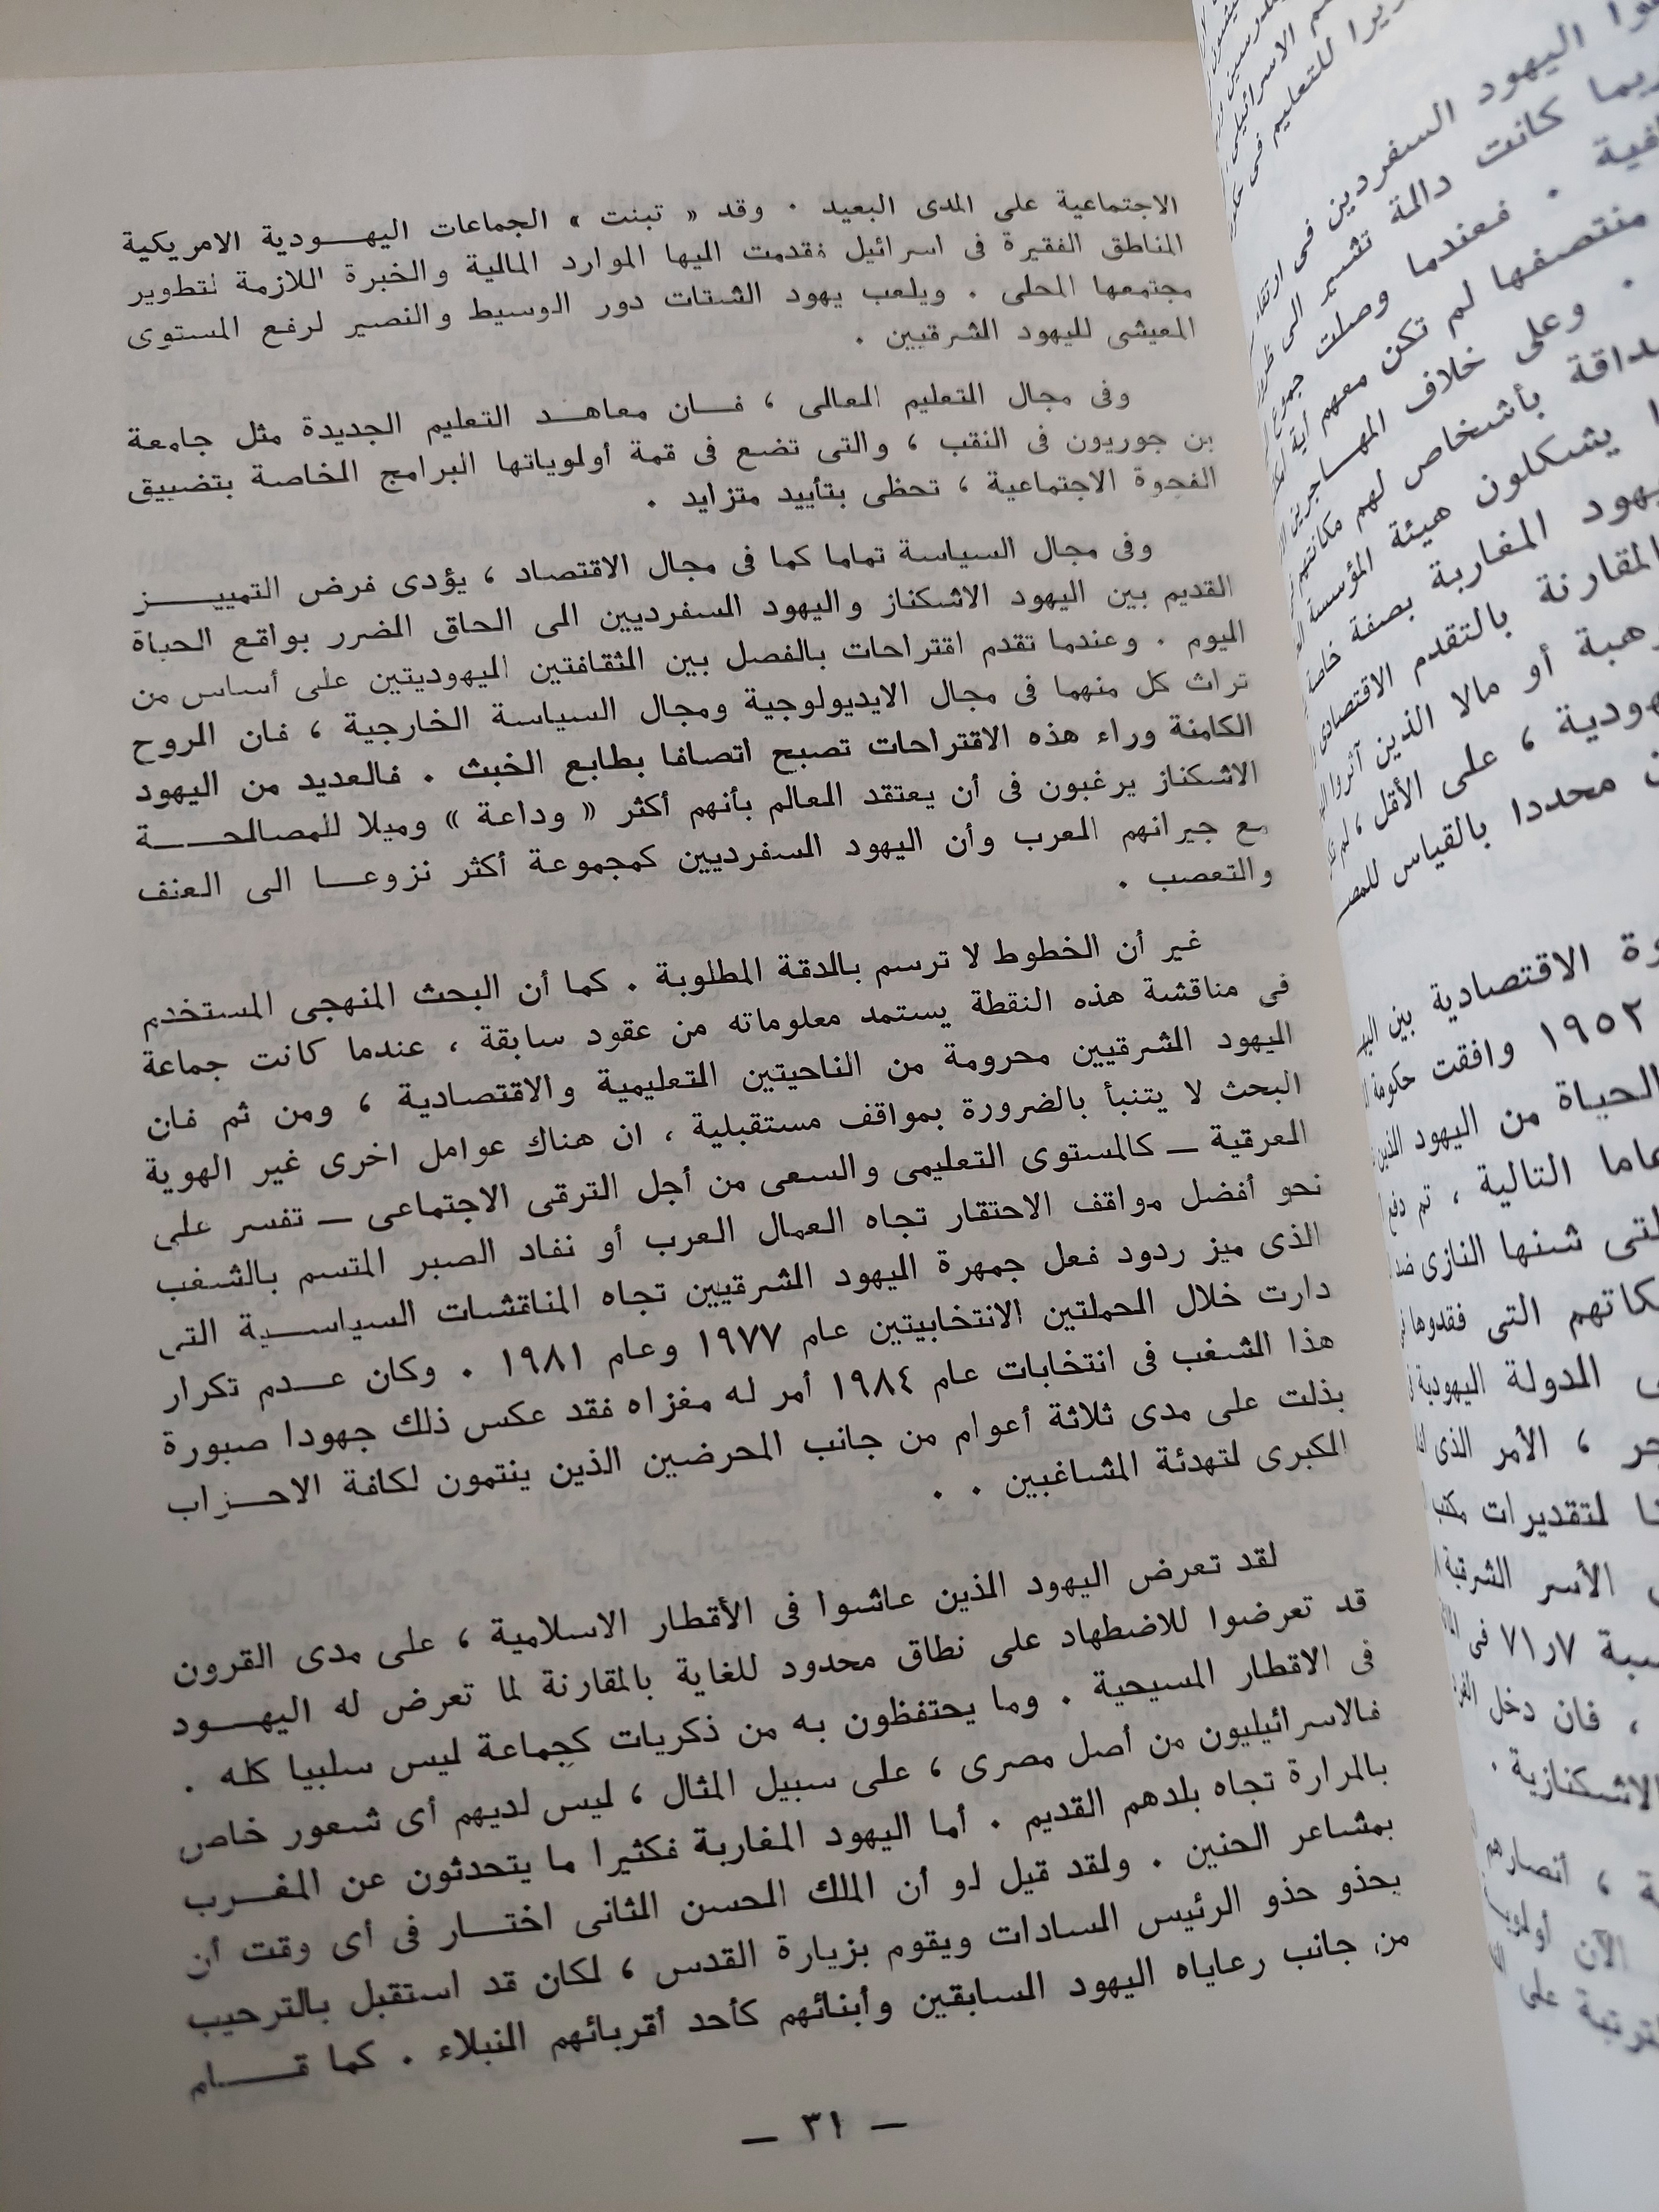 الاجتماعية على المدى البعيد . وقد « تبنت » الجماعات اليهـــودية الامريكية
المناطق الفقيرة فى اسرائيل فقدمت اليها الموارد المالية والخبرة اللازمة لتطوير
مجتمعها المحلى . ويلعب يهود الشتات دور الوسيط والنصير لرفع المستوى
المعيشى لليهود الشرقيين .
وفى مجال التعليم العالى ، فـــان معاهـــد التعليم الجديدة مثل جامعة
بن جوريون فى النقب ، والتى تضع فى قمة أولوياتها البرامج الخاصة بتضييق
الفجوة الاجتماعية ، تحظى بتأييد متزايد .
وفى مجال السياسة تماما كما فى مجال الاقتصاد ، يؤدى فرض التمييـــــز
القديم بين اليهود الاشكناز واليهود السفرديين الى الحاق الضرر بواقع الحياة
اليوم . وعندما تقدم اقتراحات بالفصل بين الثقافتين اليهوديتين على أساس من
تراث كل منهما فى مجال الايديولوجية ومجال السياسة الخارجية ، فان الروح
الكامنة وراء هذه الاقتراحات تصبح اتصافا بطابع الخبث . فالعديد من اليهود
الاشكناز يرغبون فى أن يعتقد العالم بأنهم أكثر « وداعة » وميلا للمصالحـــــة
مع جيرانهم العرب وأن اليهود السفرديين كمجموعة أكثر نزوعـــا الى العنف
والتعصب .
غير أن الخطوط لا ترسم بالدقة المطلوبة . كما أن البحث المنهجى المستخدم
فى مناقشة هذه النقطة يستمد معلوماته من عقود سابقة ، عندما كانت جماعة
اليهود الشرقيين محرومة من الناحيتين التعليمية والاقتصادية ، ومن ثم فان
البحث لا يتنبأ بالضرورة بمواقف مستقبلية ، ان هناك عوامل اخرى غير الهوية
العرقية — كالمستوى التعليمى والسعى من أجل الترقى الاجتماعى — تفسر على
نحو أفضل مواقف الاحتقار تجاه العمال العرب أو نفاد الصبر المتسم بالشغب
الذى ميز ردود فعل جمهرة اليهود الشرقيين تجاه المناقشات السياســـية التى
دارت خلال الحملتين الانتخابيتين عام ١٩٧٧ وعام ١٩٨١ . وكان عـــدم تكرار
هذا الشغب فى انتخابات عام ١٩٨٤ أمر له مغزاه فقد عكس ذلك جهودا صبورة
بذلت على مدى ثلاثة أعوام من جانب المحرضين الذين ينتمون لكافة الاحـــزاب
الكبرى لتهدئة المشاغبين . .
لقد تعرض اليهود الذين عاشوا فى الأقطار الاسلامية ، على مدى القرون
قد تعرضوا للاضطهاد على نطاق محدود للغاية بالمقارنة لما تعرض له اليهـــود
فى الاقطار المسيحية . وما يحتفظون به من ذكريات كجماعة ليس سلبيا كله .
فالاسرائيليون من أصل مصرى ، على سبيل المثال ، ليس لديهم أى شعور خاص
بالمرارة تجاه بلدهم القديم . أما اليهود المغاربة فكثيرا ما يتحدثون عن المغـــرب
بمشاعر الحنين . ولقد قيل لو أن الملك الحسن الثانى اختـــار فى أى وقت أن
يحذو حذو الرئيس السادات ويقوم بزيارة القدس ، لكان قد استقبل بالترحيب
من جانب رعاياه اليهود السابقين وأبنائهم كأحد أقربائهم النبلاء . كما قـــــام
— ٣١ —
اليهود السفردين فى
ربما كانت دالمة تشير الى
. فعندما وصلت جموع
منتصفها لم تكن معهم أية
. وعلى خلاف المهـــاجرين
بأشخاص لهم مكانتهم
يشكلون هيئة المؤسسة
المغاربة بصفة خاصة
المقارنة بالتقدم الاقتصادى
أو مالا الذين آثروا
، على الأقل ،
محددا بالقياس
الاقتصادية بين
١٩٥٢ وافقت حكومة
الحياة من اليهود الذين
التالية ، تم دفع
التى شنها النازى ضد
التى فقدوها
الدولة اليهودية
، الأمر الذى
لتقديرات مكتب
الأسر الشرقية
٧ر٧١ فى
، فان دخل
الاشكنازية .
، أنصارهم
الآن
على